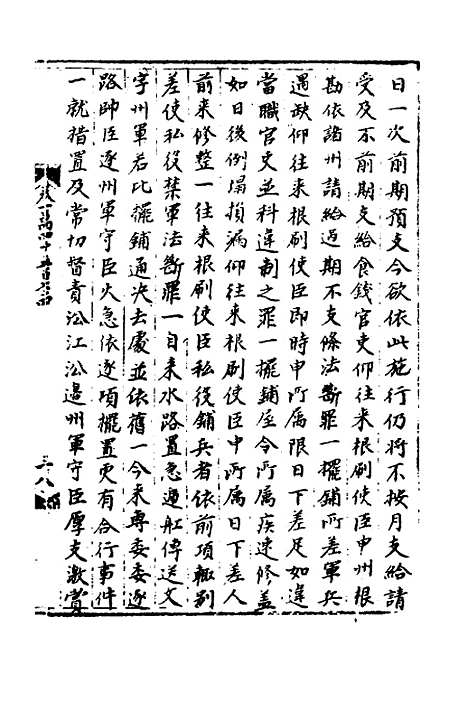 日一次前期預支今欲依此施行仍將不按月支給請
受及不前期支給食錢官吏仰往來根刷使臣申州根
勘依諸州請給過期不支條法斷罪一擺鋪所差軍兵
遇缺仰往來根刷使臣即時申所属限日下差足如違
當職官吏並科違制之罪一擺鋪屋令所属疾速修盖
如日後倒塌損漏仰往來根刷使臣申所属日下差人
前来修整一往来根刷使臣私役鋪兵者依前項輙别
差使私役禁軍法斷罪一自来水路置急逓舡傳送文
字州軍若比擺鋪通快去處並依舊一今来專委委逐
路帥臣逐州軍守臣火急依逐項擺置更有合行事件
一就措置及常切督責沿江沿邊州軍守臣厚支激賞